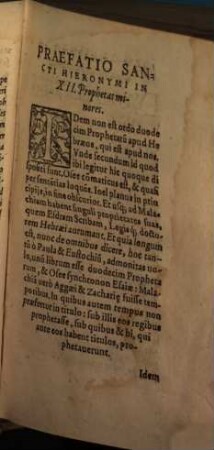 PRAEFATIO SAN-
CTI HIERONYMI IN
XII. Prophetas mi-
nores.
NOn idem ordo est duode-
cim Prophetarũ apud He
bræos, qui est apud nos.
Vnde secundum id quod
ibi legitur hic quoque
positi sunt. Osee cõmaticus est, & quasi
per sententias loquẽs. Ioel planus in prin
cipijs, in fine obscurior. Et usq; ad Mala
chiam habent singuli proprietates suas,
quem Esdram Scribam, Legisq; docto-
rem Hebræi autumant. Et quia longum
est, nunc de omnibus dicere, hoc tan-
tũ ô Paula & Eustochiũ, admonitas uo-
lo, unũ librum esse duodecim Propheta
rum, & Osee synchronon Esaiæ: Mala-
chiã uerò Aggæi & Zachariæ fuisse tem
poribus. In quibus autem tempus non
præfertur in titulo: sub illis eos regibus
prophetasse, sub quibus & hi, qui
ante eos habent titulos, pro-
phetauerunt.
Idem